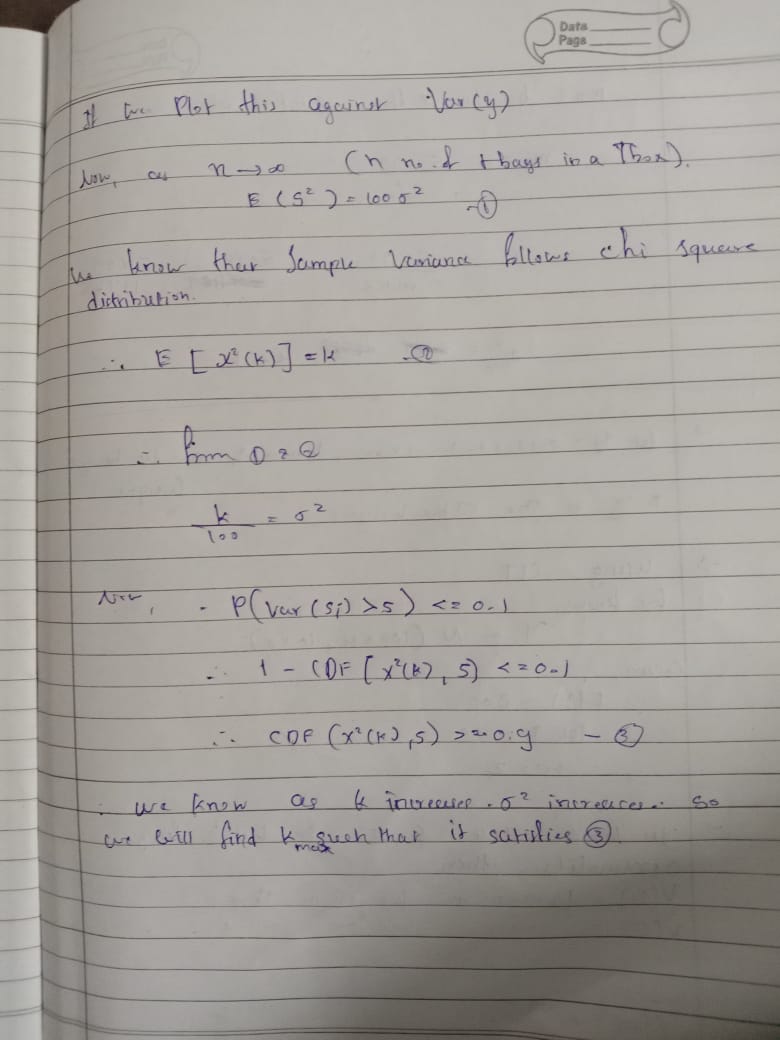 Data
Page
If we Plot this against Var(y)
Now, as n→∞ (n no. of tbags in a Tbox).
E (S²) = 100σ² -①
We know that Sample Variance follows chi square
distribution.
∴ E [x²(k)] = k -②
∴ from ① & ②
k/100 = σ²
Now, - P(Var(Si) > 5) <= 0.1
∴ 1 - CDF [x²(k), 5) <= 0.1
∴ CDF (x²(k), 5) >= 0.9 - ③
∴ we know as k increases. σ² increases. So
we will find k max such that it satisfies ③